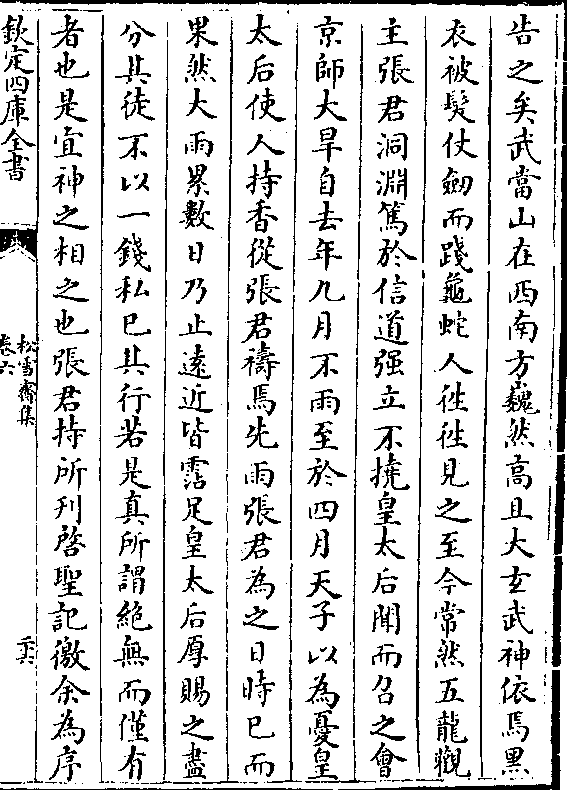 告之矣武當山在西南方巍然高且大玄武神依焉黒
衣被髪仗劒而踐龜蛇人徃徃見之至今常然五龍觀
主張君洞淵篤於信道强立不撓皇太后聞而召之會
京師大旱自去年九月不雨至於四月天子以為憂皇
太后使人持香從張君禱焉先雨張君為之日時已而
果然大雨累數日乃止遠近皆霑足皇太后厚賜之盡
分其徒不以一錢私已其行若是真所謂絶無而僅有
者也是宜神之相之也張君持所刋啓聖記徵余為序
欽定四庫全書
松雪齋集
卷六
二六